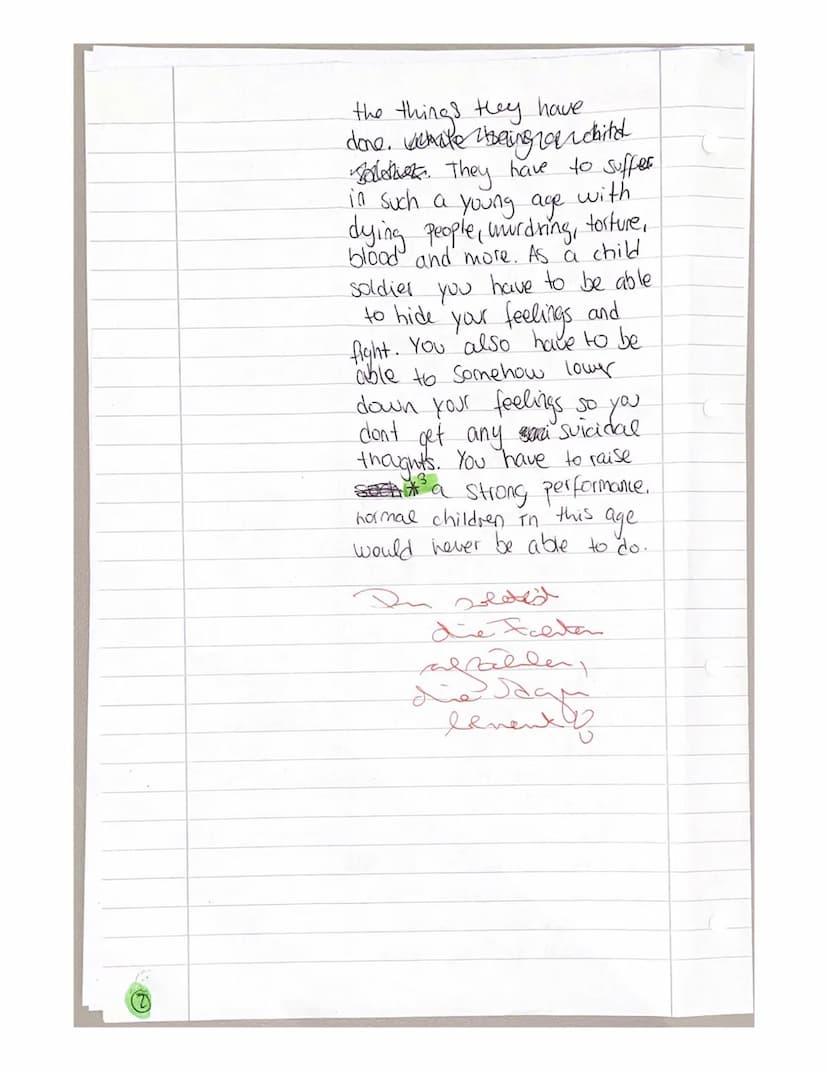 the things they have
done.
They have to suffer
in such a young age with
dying people, murdring, torture,
blood and more. As a child
soldier you have to be able
to hide your feelings and
fight. You also have to be
able to somehow lower
down your feelings so you
dont get any suicidal
thoughts. You have to raise
*3 a strong performance,
normal children in this age
would never be able to do.
Du solltest
die Fakten
aufzählen,
die
2